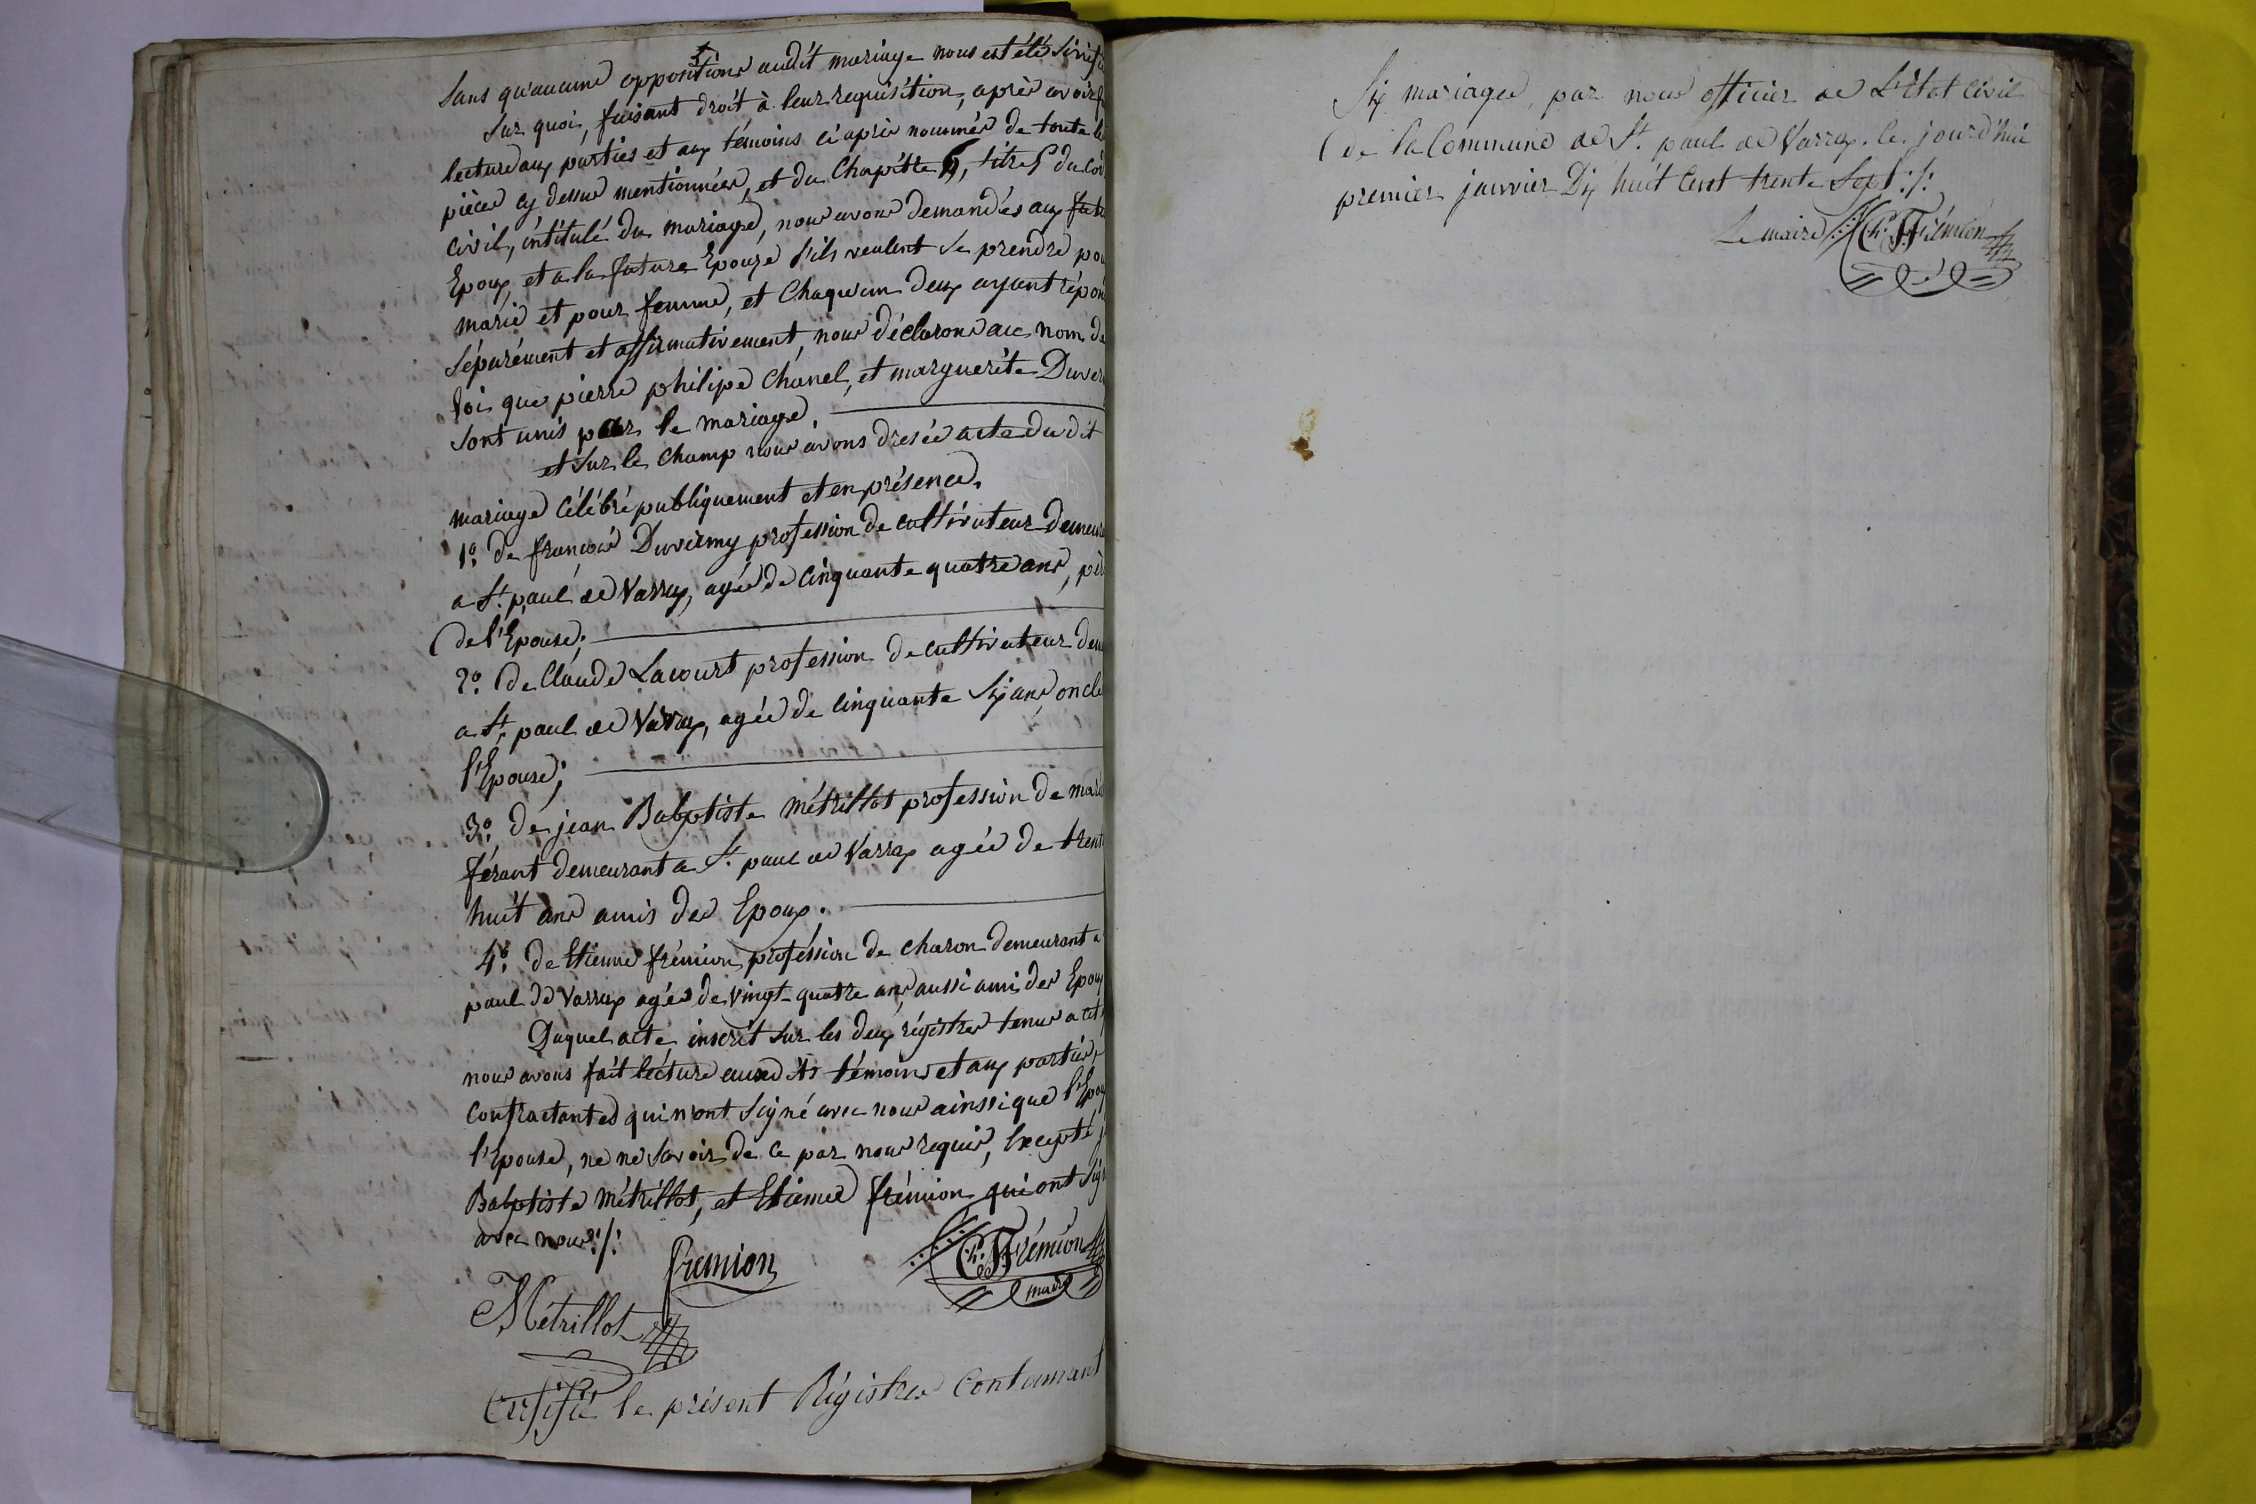 Sans qu'aucune oppositions audit mariage nous est été
Sur quoi, faisant droit à leur requisition, après avoir
lecture aux parties et aux témoins ci après nommés de toute
pièces cy dessus mentionnées, et du Chapitre 6, titre 5 du
civil, intitulé du mariage, nous avons demandés aux
Epoux, et a la future Epouse s'ils veulent se prendre
marié et pour femme, et Chaqu'un deux ayant
séparément et affirmativement, nous déclarons au nom de
loi que pierre philipe Chanel, et marguerite
sont unis par le mariage.
et Sur le Champ nous avons dresée acte dudit
mariage Célébré publiquement et en présence.
1º. de françois Duvirmy profession de cultivateur
a St. paul de Varrax, agée de Cinquante quatre ans,
de l'Epouse;
2º. de Claude Lacourt profession de cultivateur
a St. paul de Varax, agée de Cinquante Six ans,
l'Epouse;
3º. de jean Babptiste métrillot profession de
férant demeurant a St. paul de Varrax agée de
huit ans amis des Epoux.
4º. de Etienne frémion, profession de charon demeurant a
paul de Varrax agée de vingt-quatre ans, aussi ami des
Duquel acte inscrit sur les deux régistres tenus a
nous avons fait lécture aux dits témoins et aux parties
Contractantes qui n'ont signé avec nous ainssi que
l'Epouse, ne ne savoir de ce par nous requis, Excepté
Babptiste métrillot, et Etienne frémion qui ont
avec nous:/:
fremion
Ch. Frémion
maire
Métrillot
Certifié le présent Régistres Contenant
Six mariages, par nous officier de L'Etat Civil
de la Commune de St. paul de Varrax. le jourd'hui
premier janvier Dix huit Cent trente Sept:/:
Le maire Ch. Frémion